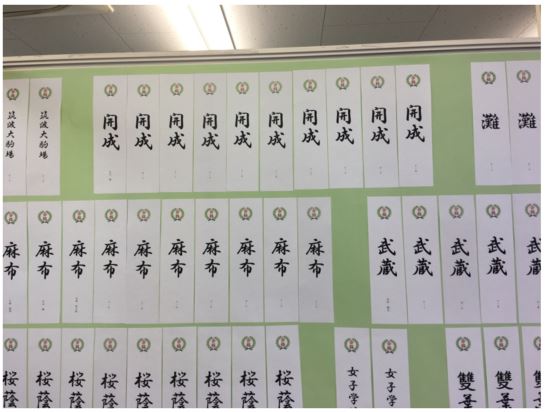 筑波大駒場
筑波大駒場
開成
開成
開成
開成
開成
開成
開成
開成
開成
開成
灘
灘
麻布
麻布
麻布
麻布
麻布
麻布
麻布
麻布
麻布
麻布
武蔵
武蔵
武蔵
武蔵
武蔵
桜蔭
桜蔭
桜蔭
桜蔭
桜蔭
桜蔭
桜蔭
桜蔭
桜蔭
女子学
女子学
雙葉
雙葉
雙葉